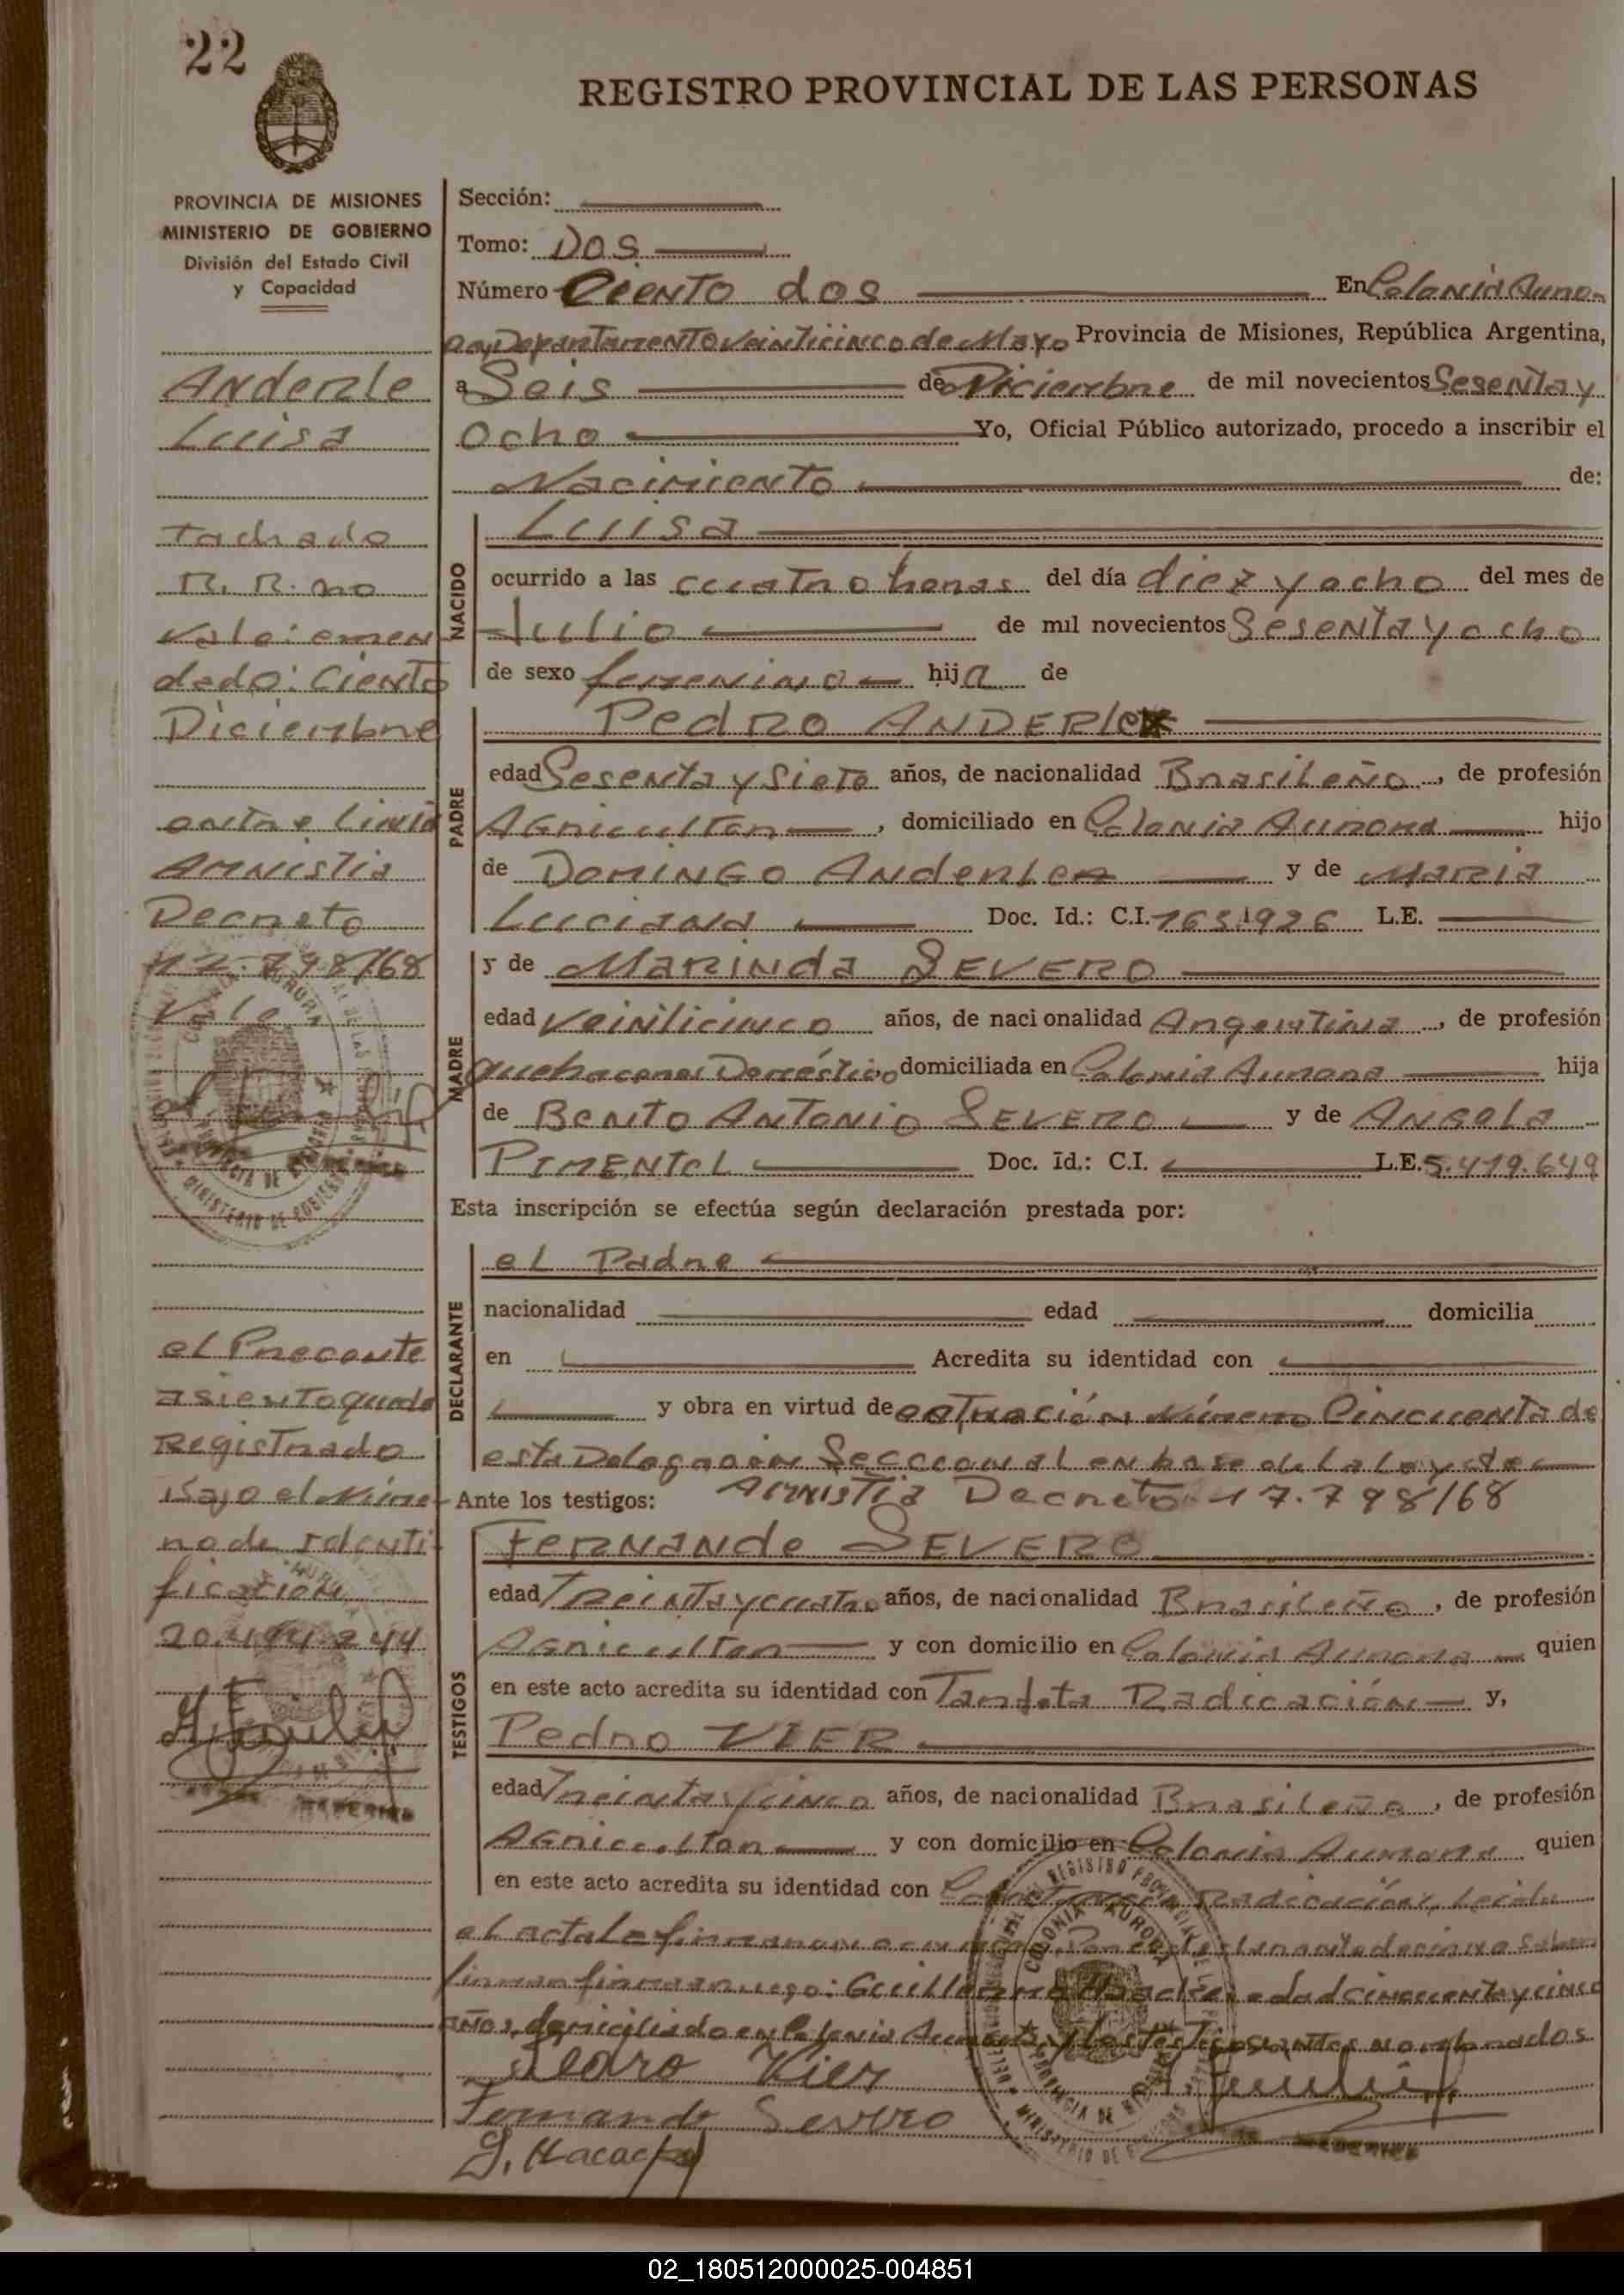 22
REGISTRO PROVINCIAL DE LAS PERSONAS
PROVINCIA DE MISIONES
MINISTERIO DE GOBIERNO
División del Estado Civil
y Capacidad
Anderle
Luisa
Tachado
R. R. no
Vale: emen
dado: Ciento
Diciembre
entre linia
Amnistia
Decreto
17.798/68
Vale
el Precente
asiento queda
Registrado
Bajo el Núme
ro de Identi
ficacion
20.494.244
Sección:
Tomo: DOS
Número Ciento dos En Colonia Auro-
ra, Departamento Veinticinco de Mayo Provincia de Misiones, República Argentina,
a Seis de Diciembre de mil novecientos Sesenta y
Ocho Yo, Oficial Público autorizado, procedo a inscribir el
Nacimiento de:
NACIDO
Luisa
ocurrido a las cuatro horas del día diez y ocho del mes de
Julio de mil novecientos Sesenta y ocho
de sexo femenino hija de
PADRE
Pedro ANDERle
edad Sesenta y Siete años, de nacionalidad Brasileño, de profesión
Agricultor, domiciliado en Colonia Aurora hijo
de DOMINGO Anderle y de Maria
Luciana Doc. Id.: C.I. 163.926 L.E.
MADRE
y de MARINDA SEVERO
edad Veinticinco años, de nacionalidad Argentina, de profesión
quehaceres Doméstico, domiciliada en Colonia Aurora hija
de BENTO ANTONIO SEVERO y de ANGELA
PIMENTEL Doc. Id.: C.I. L.E. 5.419.649
Esta inscripción se efectúa según declaración prestada por:
DECLARANTE
el Padre
nacionalidad edad domicilia
en Acredita su identidad con
y obra en virtud de actuación Número Cincuenta de
esta Delegación Seccional en base de la Ley de
Amnistia Decreto 17.798/68
Ante los testigos:
TESTIGOS
Fernande SEVERO
edad Treinta y cuatro años, de nacionalidad Brasileño, de profesión
Agricultor y con domicilio en Colonia Aurora quien
en este acto acredita su identidad con Tarjeta Radicación y,
Pedro VIER
edad Treinta y cinco años, de nacionalidad Brasileño, de profesión
Agricultor y con domicilio en Colonia Aurora quien
en este acto acredita su identidad con Radicación, Leida
el acta la firmaron
firmar firma a ruego: edad cincuenta y cinco
años, domiciliado en Colonia Aurora y los testigos antes nombrados.
Pedro Vier
Fernando Severo
02_180512000025-004851